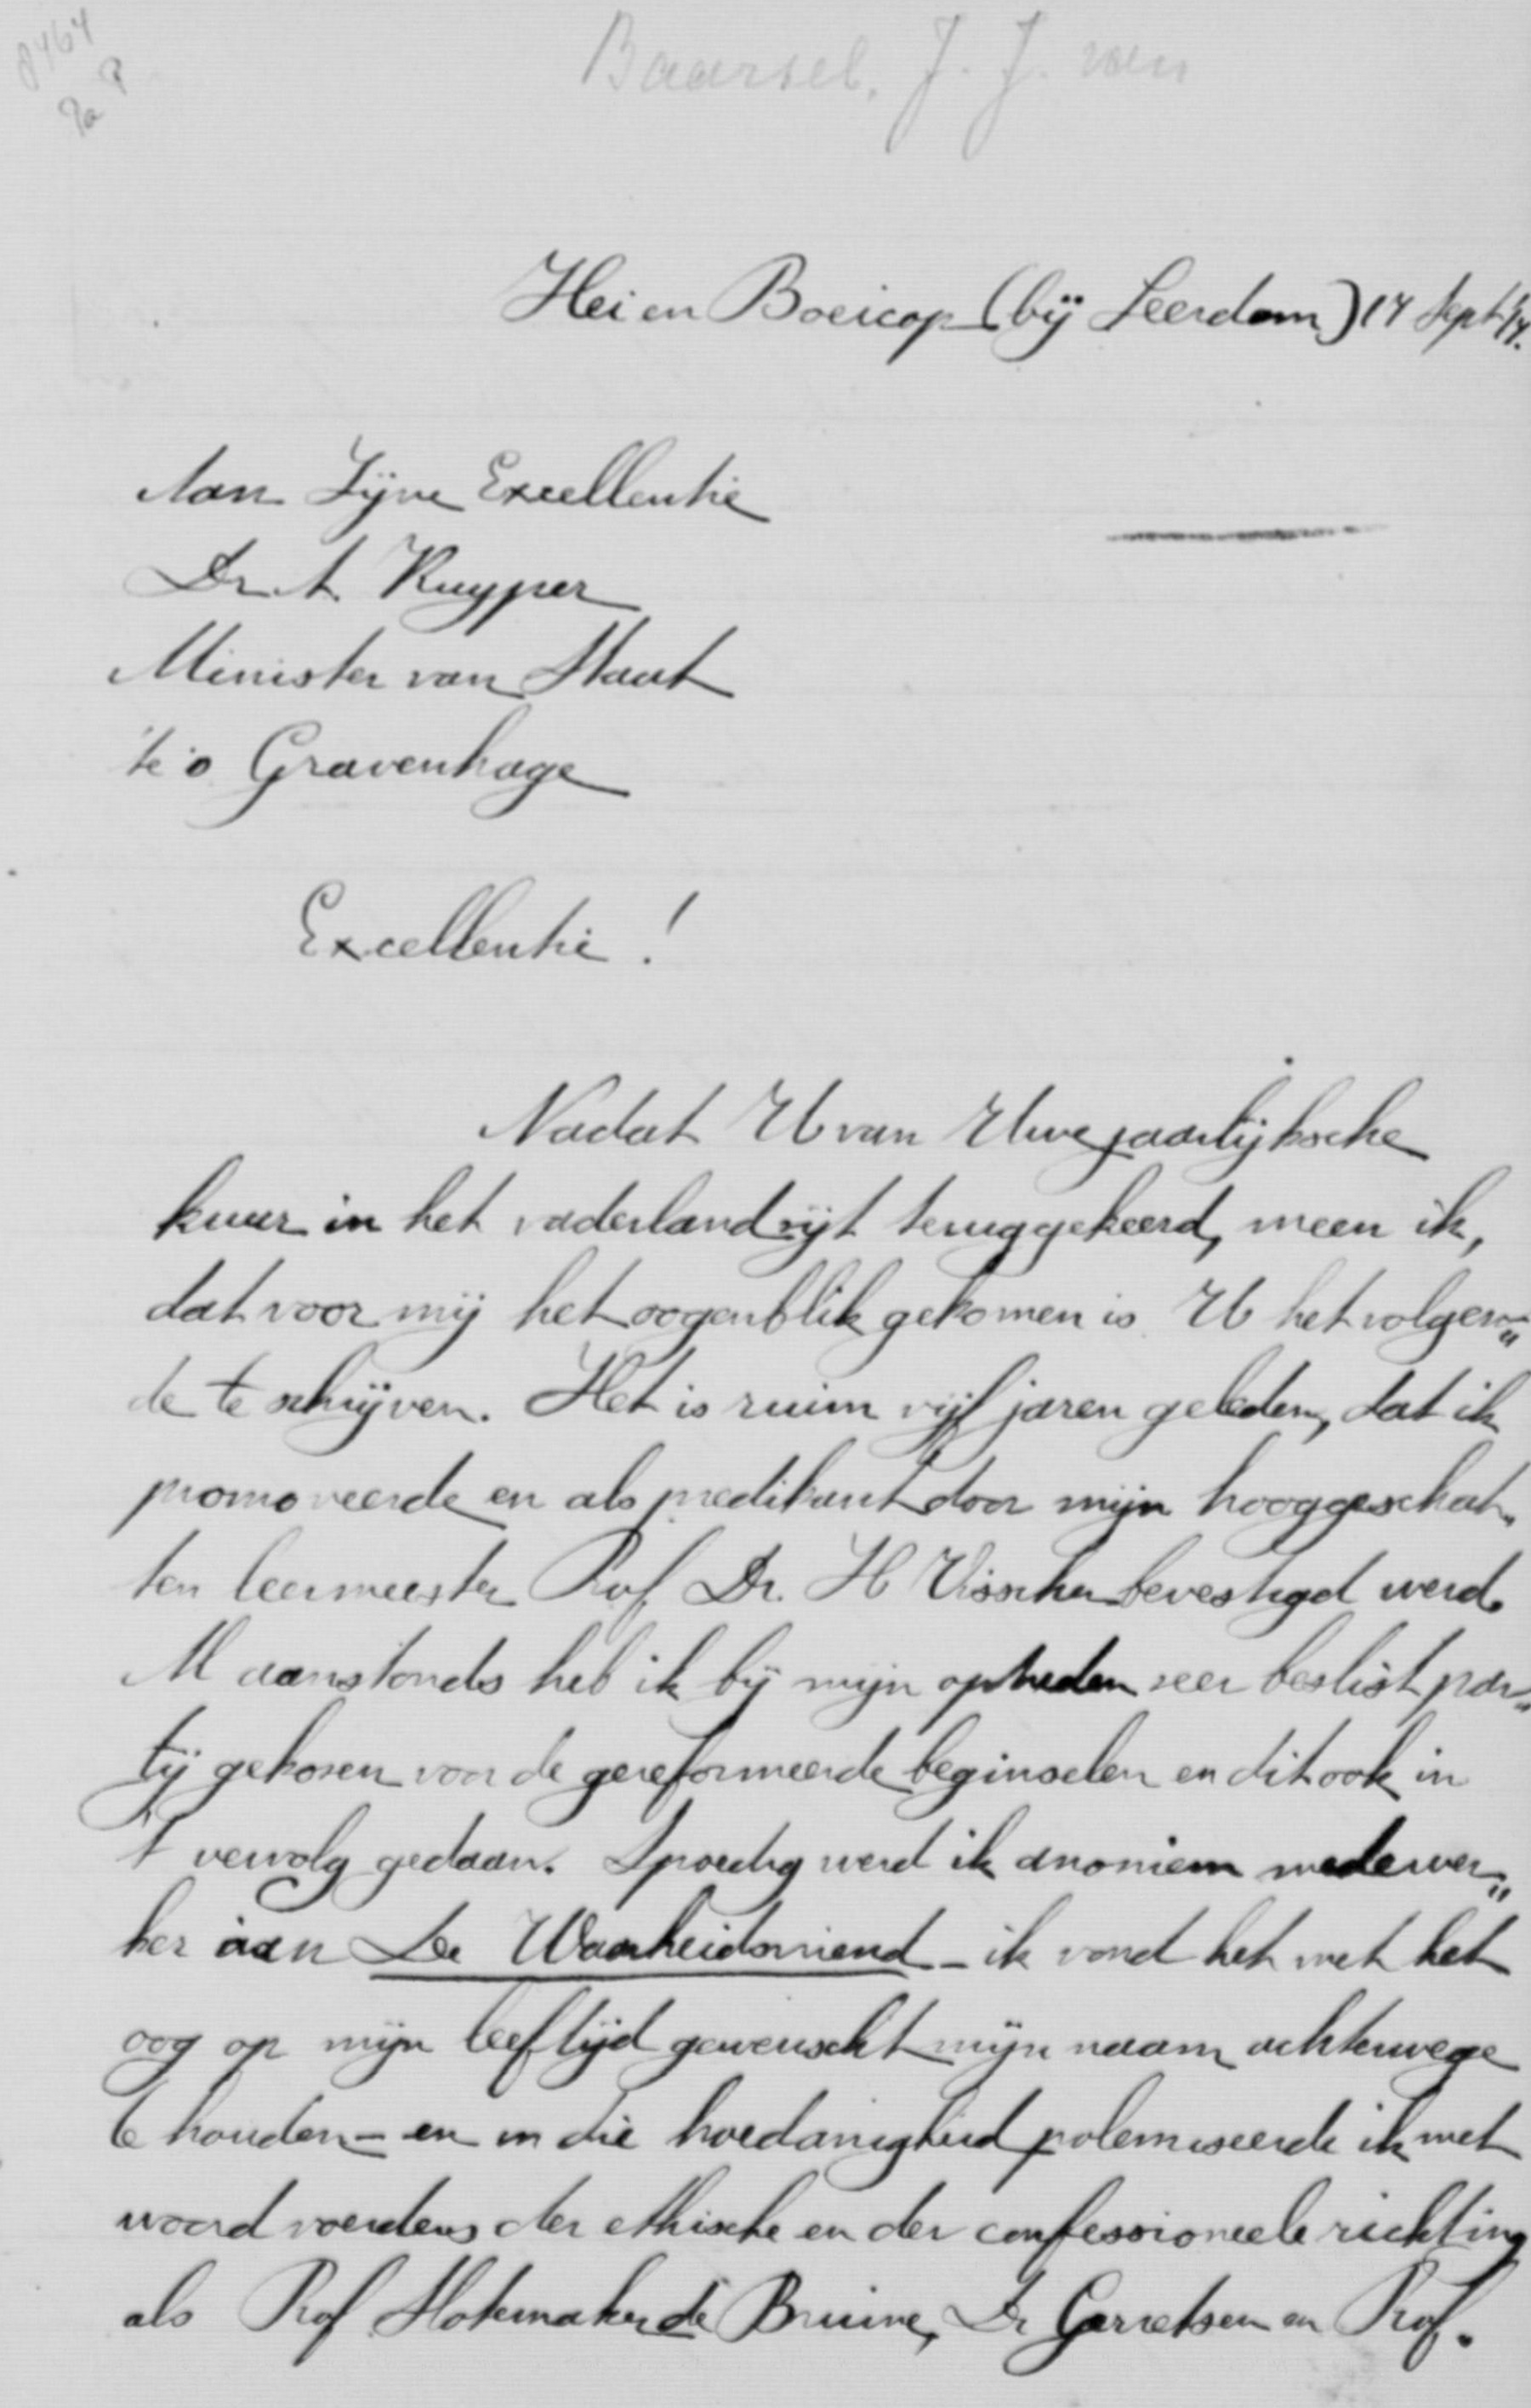 8464
Baarsel, J. J. van
Hei en Boeicop (bij Leerdam) 14 Sept '14.
Aan Zijne Excellentie
Dr. A. Kuyper
Minister van Staat
te 's Gravenhage
Excellentie!
Nadat U van Uwe jaarlijksche
kuur in het vaderland zijt teruggekeerd, meen ik,
dat voor mij het oogenblik gekomen is U het volgen„
de te schrijven. Het is ruim vijf jaren geleden, dat ik
promoveerde en als predikant door mijn hooggeschat„
ten leermeester Prof. Dr. H Visscher bevestigd werd.
Al aanstonds heb ik bij mijn optreden zeer beslist par„
tij gekozen voor de gereformeerde beginselen en dit ook in
't vervolg gedaan. Spoedig werd ik anoniem medewer„
ker aan De Waarheidsvriend - ik vond het met het
oog op mijn leeftijd gewenscht mijn naam achterwege
te houden - en in die hoedanigheid polemiseerde ik met
woordvoerders der ethische en der confessioneele richting
als Prof Slotemaker de Bruine, Dr Gerretsen en Prof.